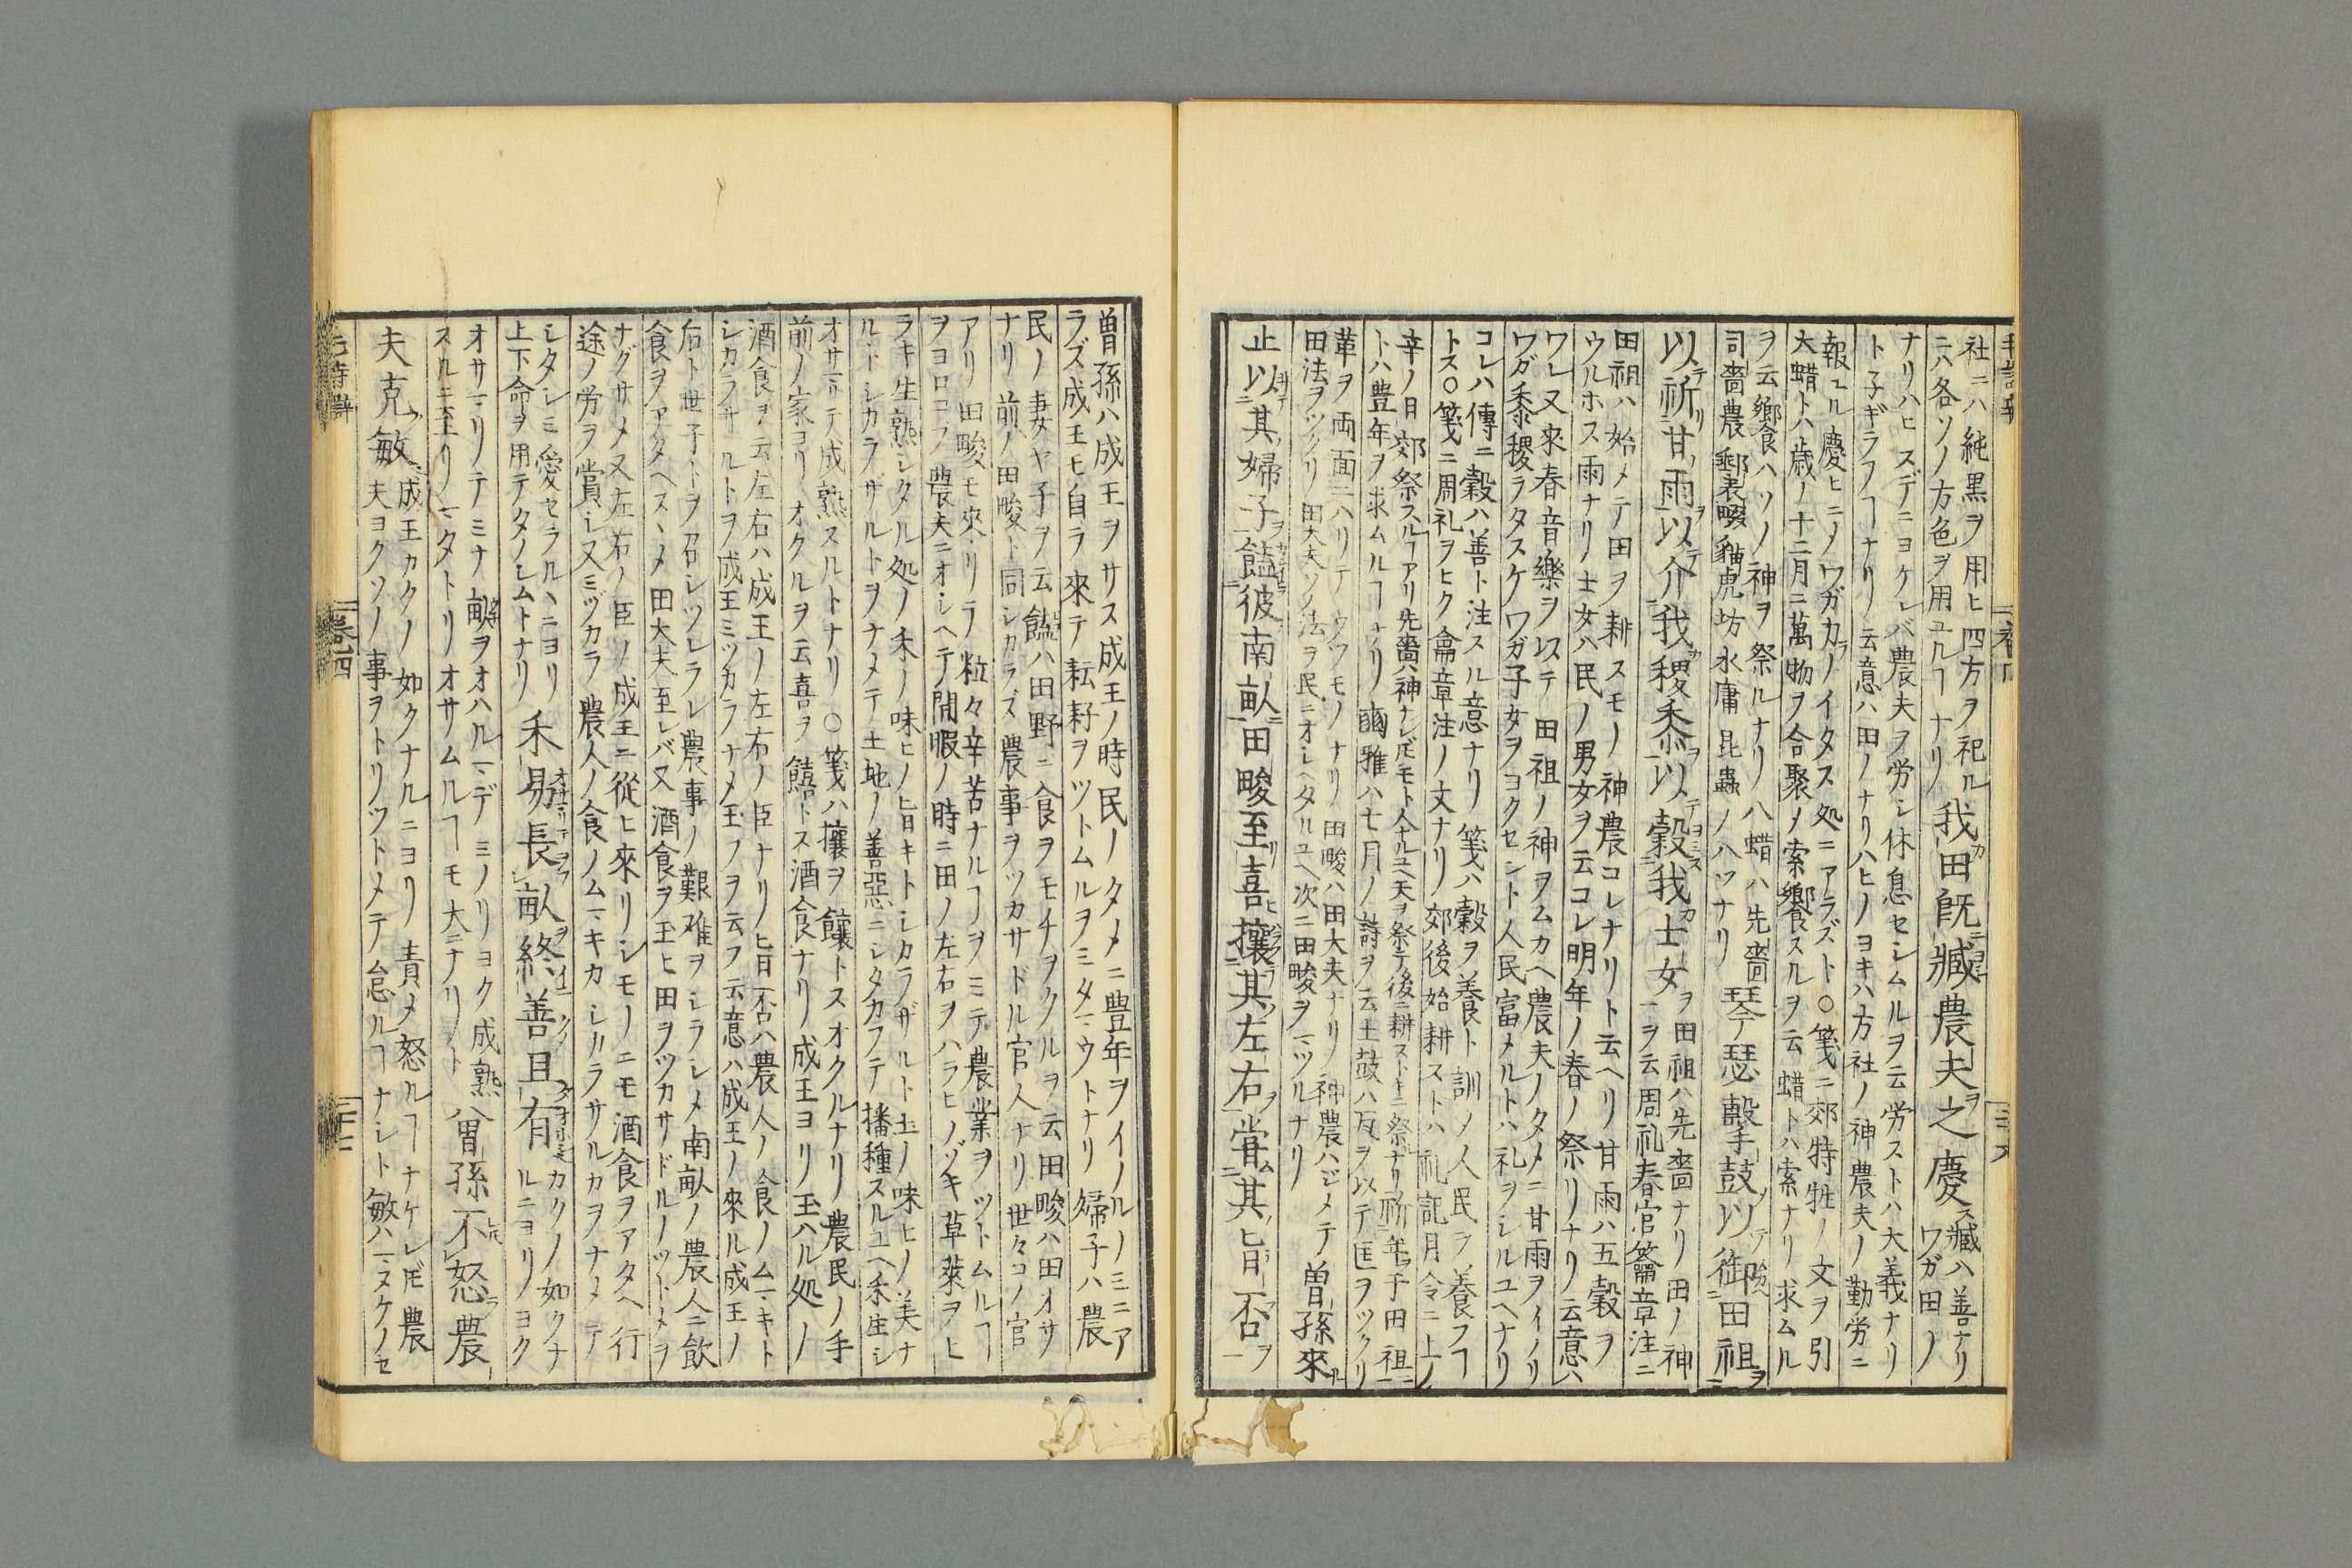 社ニハ純黒ヲ用ヒ四方ヲ祀ル
ニハ各ソノ方色ヲ用ユルヿナリ
我田既臧農夫之慶
臧ハ善ナリ
ワガ田ノ
ナリハヒスデニヨケレバ農夫ヲ労シ休息セシムルヲ云労ストハ大義ナリ
ト子ギラフヿナリ云意ハ田ノナリハヒノヨキハ方社ノ神農夫ノ勤労ニ
報ユル慶ヒニノワガカノイタス処ニアラズト○箋ニ郊特牲ノ文ヲ引
大蜡トハ歳ノ十二月ニ萬物ヲ合聚メ索饗スルヲ云蜡トハ索ナリ求ムル
ヲ云饗ハソノ神ヲ祭ルナリ八蜡ハ先嗇
司嗇農郵表畷貓虎坊水庸昆蟲ノ八ツナリ
琴瑟擊鼓以御田祖
以祈甘雨以介我稷黍以穀我士女
田祖ハ先嗇ナリ田ノ神
ヲ云周礼春官籥章注ニ
田祖ハ始メテ田ヲ耕スモノ神農コレナリト云ヘリ甘雨ハ五穀ヲ
ウルホス雨ナリ士女ハ民ノ男女ヲ云コレ明年ノ春ノ祭リナリ云意ハ
ワレ又來春音樂ヲ以テ田祖ノ神ヲムカヘ農夫ノタメニ甘雨ヲイノリ
ワガ黍稷ヲタスケワガ子女ヲヨクセント人民富メルトハ礼ヲシルユヘナリ
コレハ傳ニ穀ハ善ト注スル意ナリ箋ハ穀ヲ養ト訓メ人民ヲ養フヿ
トス○箋ニ周礼ヲヒク籥章注ノ文ナリ郊後始耕ストハ礼記月令ニ上ノ
辛ノ日郊祭スルヿアリ先嗇ハ神ナレ𪜈モト人ナルユヘ天ヲ祭テ後ニ耕ストキニ祭ナリ祈年于田祖
トハ豊年ヲ求ムルヿナリ豳雅ハ七月ノ詩ヲ云土鼓ハ瓦ヲ以テ匡ヲツクリ
革ヲ両面ニハリテウツモノナリ田畯ハ田大夫ナリ神農ハジメテ
田法ヲツクリ田大夫ソノ法ヲ民ニオシヘタルユヘ次ニ田畯ヲマツルナリ
曽孫來
止以其婦子饁彼南畝田畯至喜攘其左右嘗其旨否
曽孫ハ成王ヲサス成王ノ時民ノタメニ豊年ヲイノルノミニア
ラズ成王モ自ラ來テ耘耔ヲツトムルヲミタマウトナリ婦子ハ農
民ノ妻ヤ子ヲ云饁ハ田野ニ食ヲモチヲクルヲ云田畯ハ田オサ
ナリ前ノ田畯ト同シカラズ農事ヲツカサドル官人ナリ世々コノ官
アリ田畯モ來リテ粒々辛苦ナルヿヲミテ農業ヲツトムルヿ
ヲヨロコフ農夫ニオシヘテ閒暇ノ時ニ田ノ左右ヲハラヒノゾキ草萊ヲヒ
ラキ生熟シタル処ノ禾ノ味ヒノ旨キトシカラザルト土ノ味ヒノ美ナ
ルトシカラザルトヲナメテ土地ノ善惡ニシタカフテ播種スルユヘ禾生シ
オサマリテ成熟スルトナリ○箋ハ攘ヲ饟トスオクルナリ農民ノ手
前ノ家ヨリオクルヲ云喜ヲ饎トス酒食ナリ成王ヨリ玉ハル処ノ
酒食ヲ云左右ハ成王ノ左右ノ臣ナリ旨否ハ農人ノ食ノムマキト
シカラサルトヲ成王ミツカラナメ玉フヲ云フ云意ハ成王ノ來ル成王ノ
右ト世子トヲ召シツレラレ農事ノ艱难ヲシラシメ南畝ノ農人ニ飲
食ヲアタヘスヽメ田大夫至レバ又酒食ヲ玉ヒ田ヲツカサドルノツトメヲ
ナグサメ又左右ノ臣ノ成王ニ從ヒ來リシモノニモ酒食ヲアタヘ行
途ノ労ヲ賞シ又ミヅカラ農人ノ食ノムマキカシカラサルカヲナメテ
シタシミ愛セラルヽニヨリ
上下命ヲ用テタノシムトナリ
禾易長畝終善且有
カクノ如クナ
ルニヨリノヨク
オサマリノテミナ畝ヲオハルマデミノリヨク成熟
スルニ至リマタトリオサムルヿモ大ニナリト
曽孫不怒農
夫克敏
成王カクノ如クナルニヨリ責メ怒ルヿナケレ𪜈農
夫ヨクソノ事ヲトリツトメテ怠ルヿナシト敏ハマヌケノセ
卷四